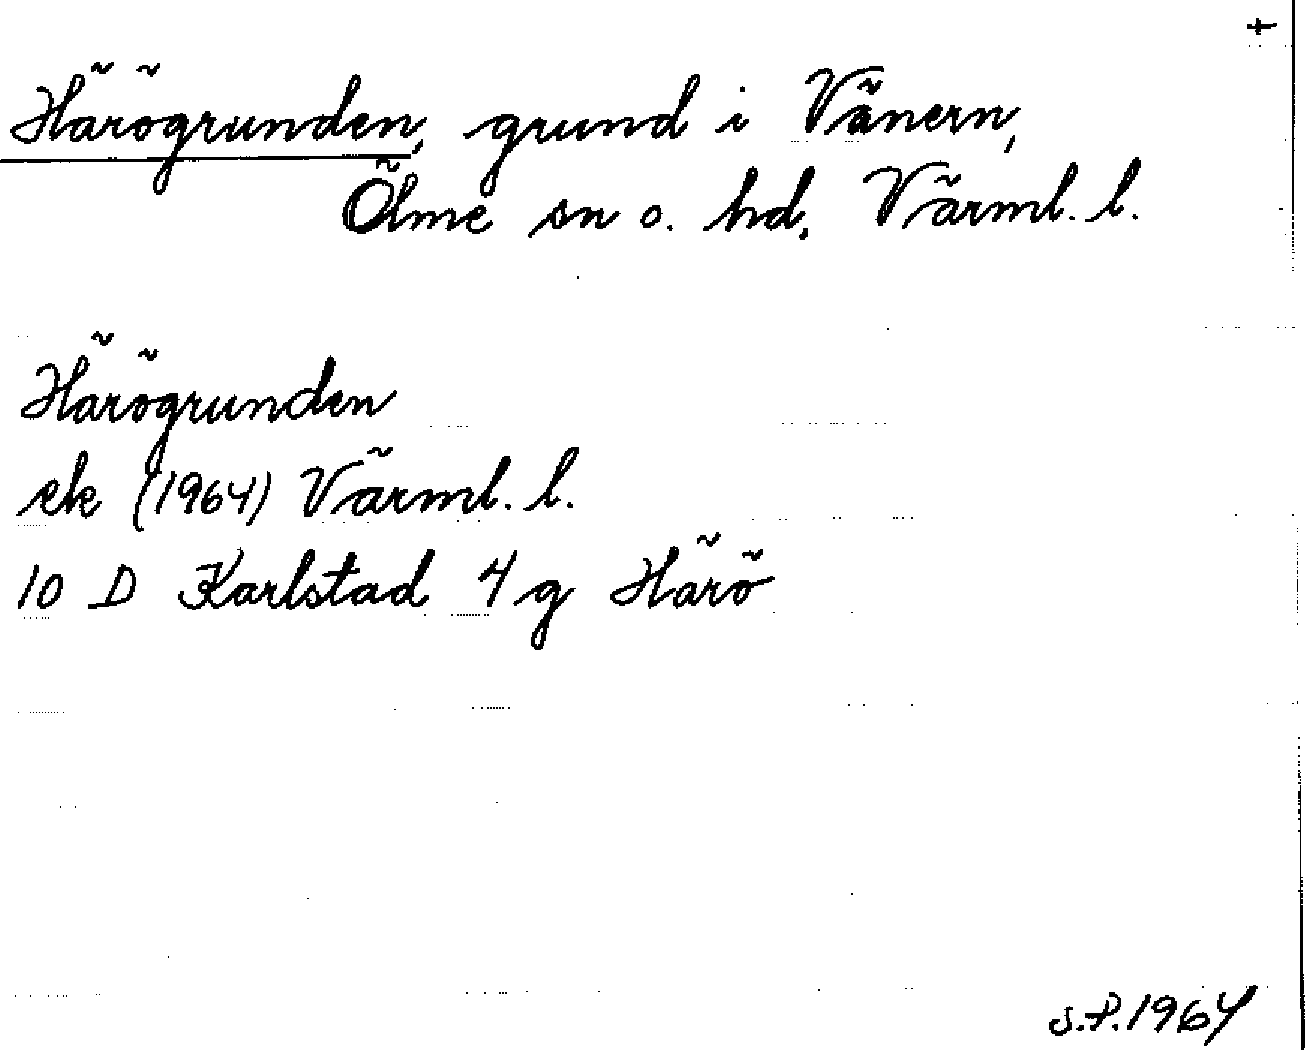 +
Härögrunden, grund i Vänern,
Ölme sn o. hd, Värml. l.
Härögrunden
ek (1964) Värml. l.
10 D Karlstad 4 g Härö
S.P. 1964